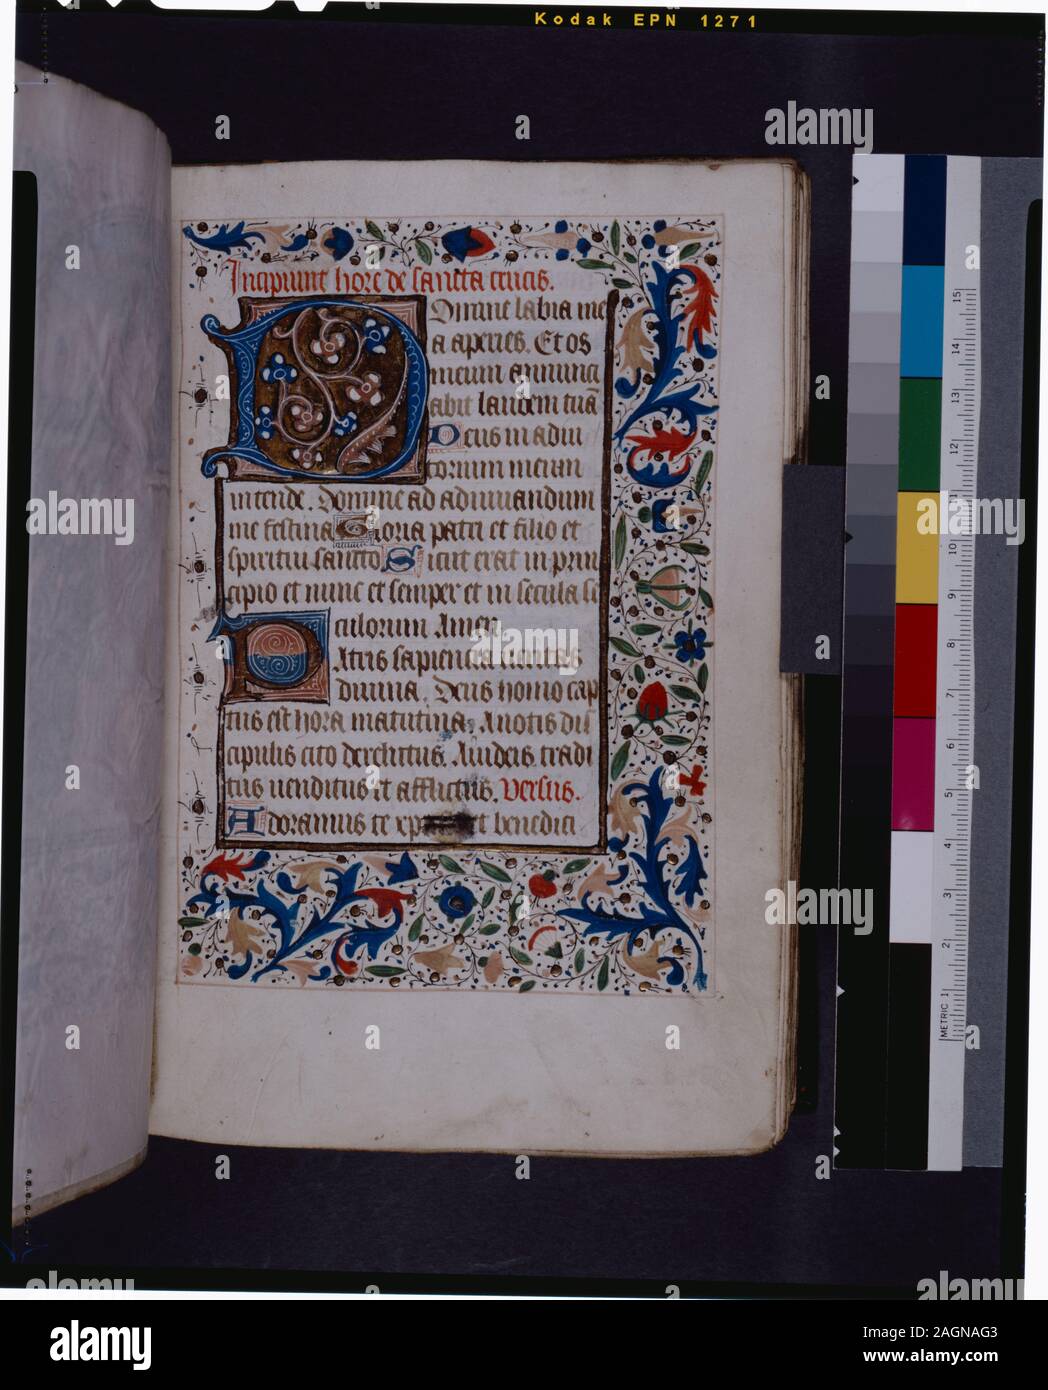 Kodak EPN 1271
Incipiunt hore de sancta crucis.
Domine labia me
a aperies. Et os
meum annunci
abit laudem tuā
Deus in adiu
torium meum
intende. Domine ad adiuuandum
me festina Gloria patri et filio et
spiritui sancto Sicut erat in prin
cipio et nunc et semper et in secula se
culorum Amen
Patris sapiencia ueritas
diuina. Deus homo cap
tus est hora matutina. A notis dis
cipulis cito derelictus. A iudeis tradi
tus uenditus et afflictus. Versus.
Adoramus te xpe et benedici
METRIC 1 2 3 4 5 6 7 8 9 10 11 12 13 14 15
alamy
alamy
Image ID: 2AGNAG3
www.alamy.com